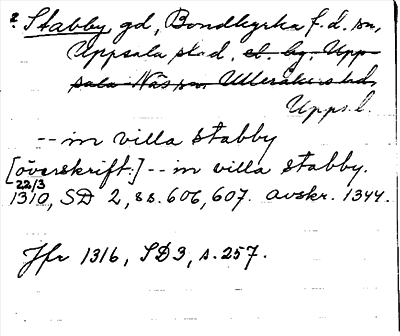 ? Stabby gd, Bondkyrka f.d. sn,
Uppsala stad, et. lg. Upp-
sala-Näs sn. Ulleråkers hd,
Upps. l.
-- in villa stabby
[överskrift:] -- in villa stabby.
22/3
1310, SD 2, ss. 606, 607. avskr. 1344.
Jfr 1316, SD 3, s. 257.